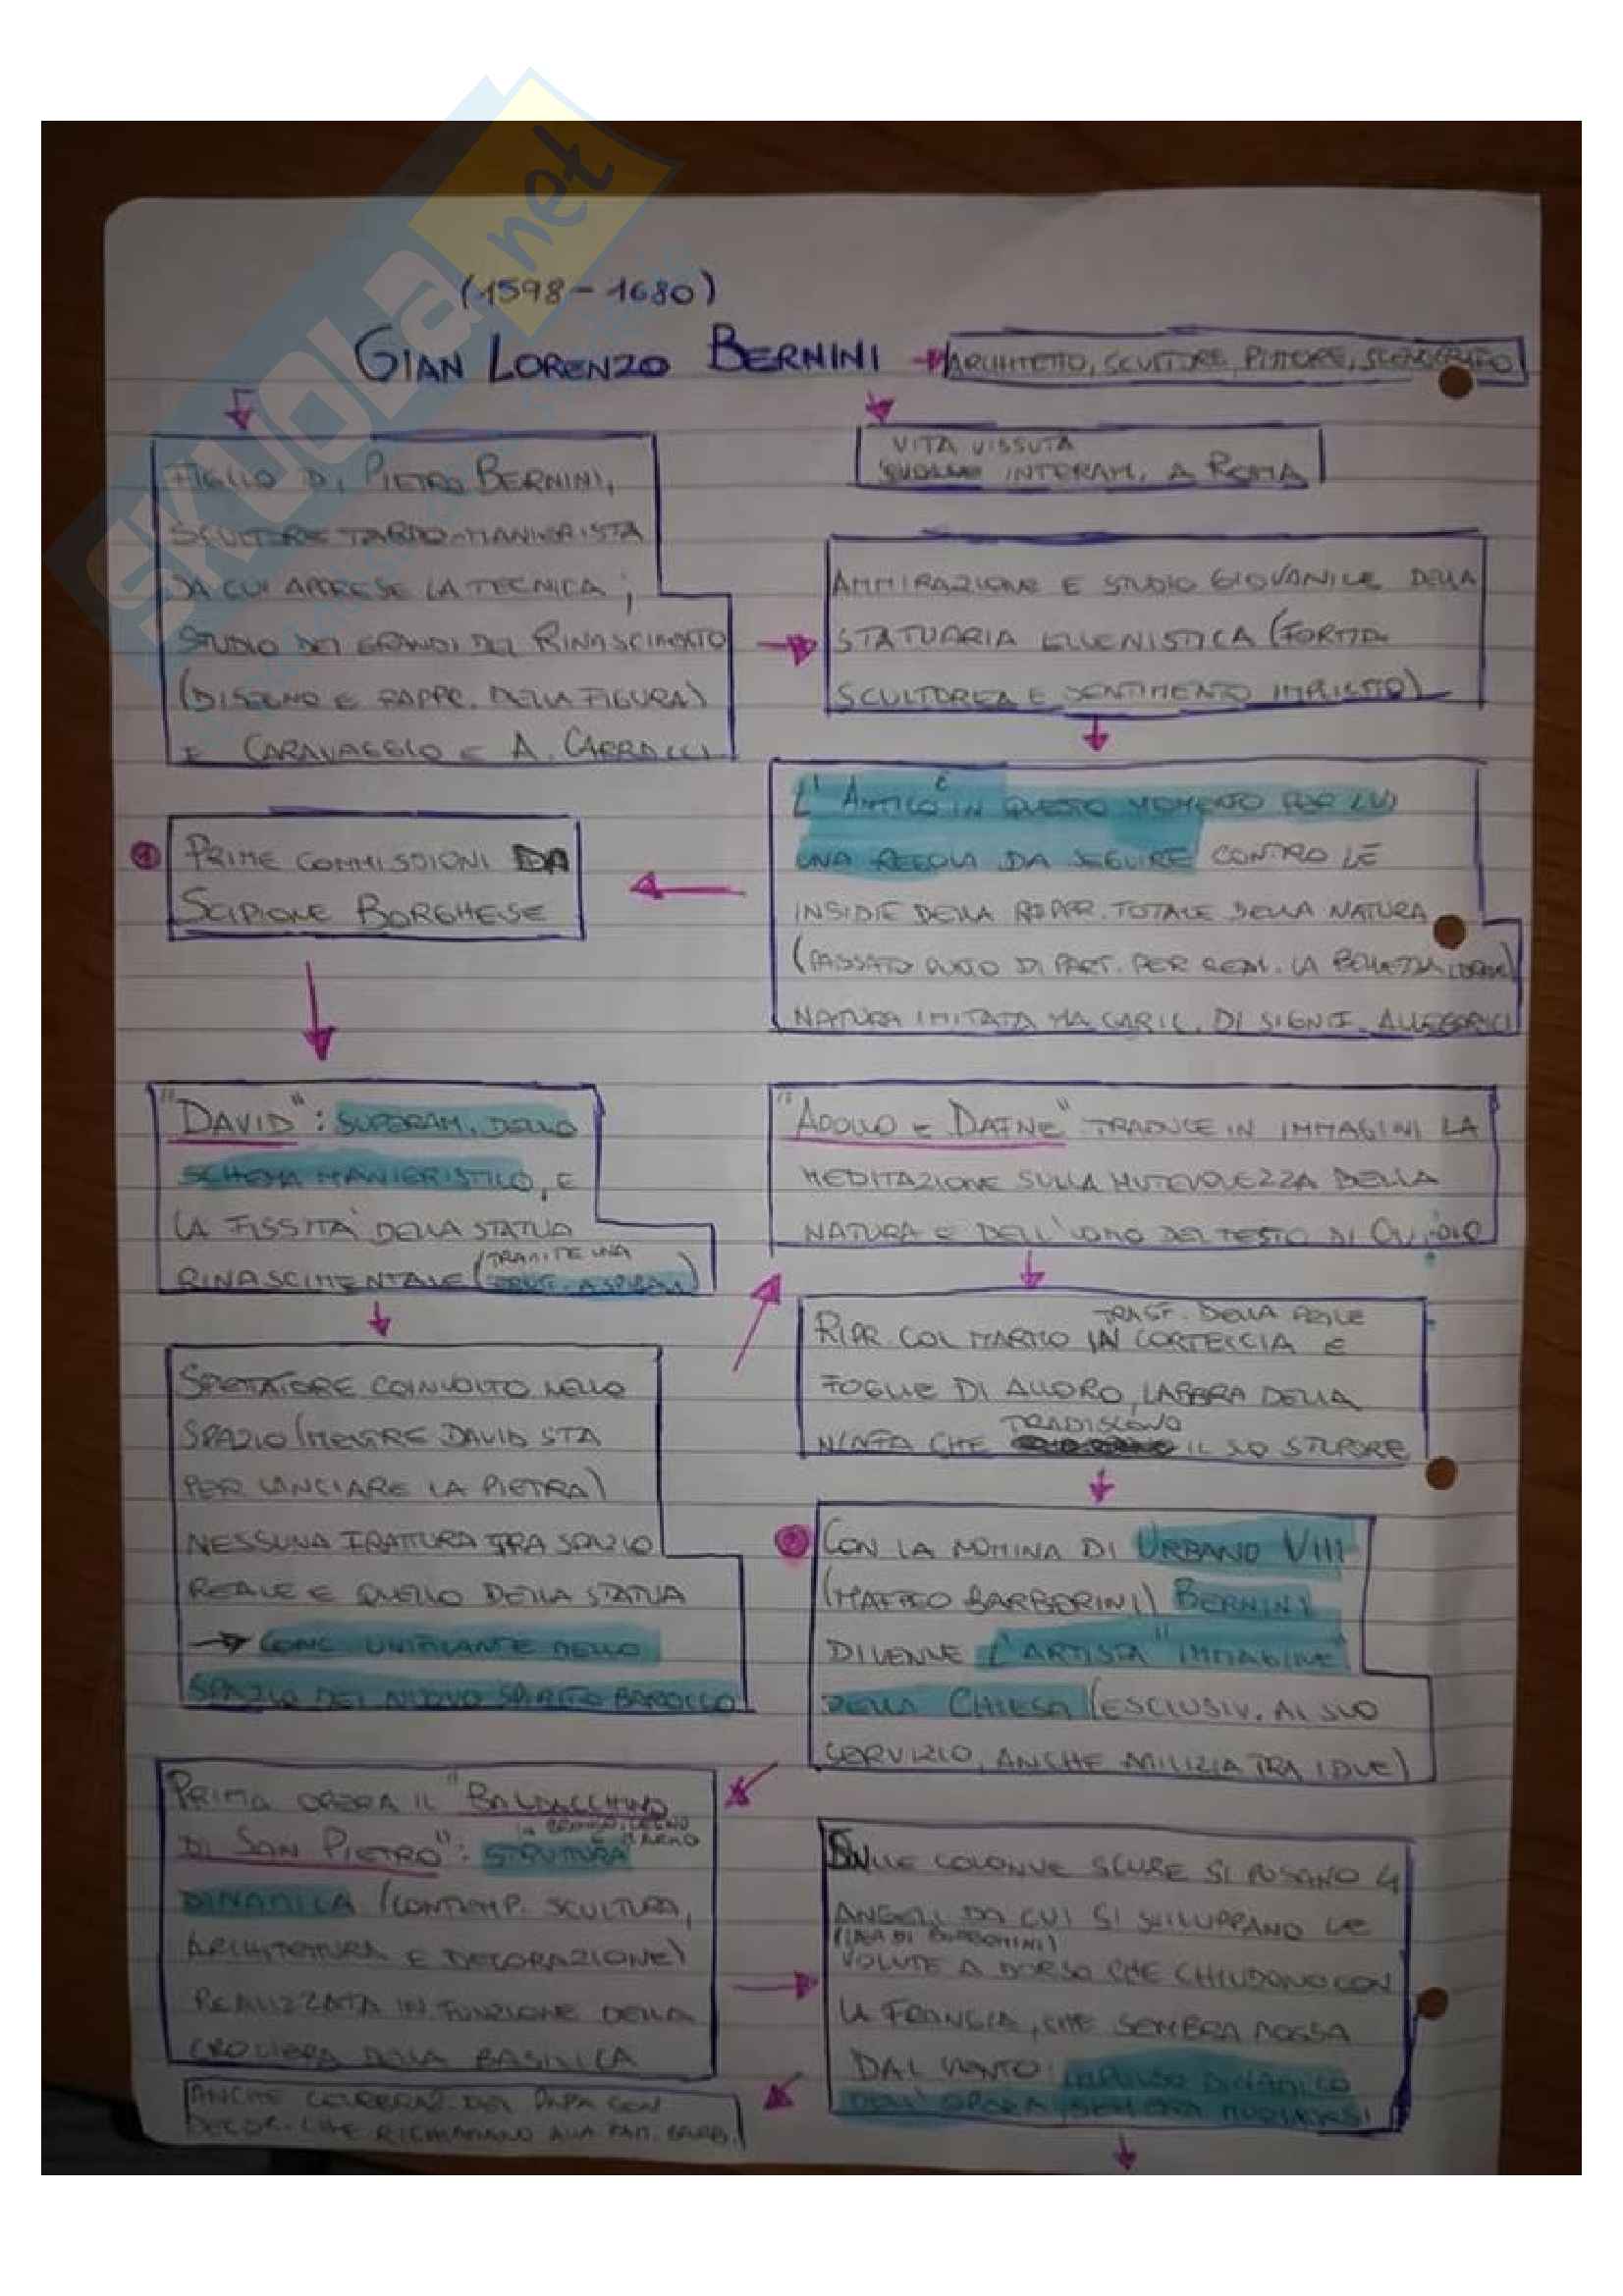 SKUOLA.net
(1598-1680)
GIAN LORENZO BERNINI → ARCHITETTO, SCULTORE, PITTORE, SCENOGRAFO
FIGLIO DI PIETRO BERNINI,
SCULTORE TARDO-MANIERISTA
DA CUI APPRESE LA TECNICA;
STUDIO DEI GRANDI DEL RINASCIMENTO
(DISEGNO E RAPPR. DELLA FIGURA)
E CARAVAGGIO E A. CARRACCI
VITA VISSUTA
INTERAM. A ROMA
AMMIRAZIONE E STUDIO GIOVANILE DELLA
STATUARIA ELLENISTICA (FORMA
SCULTOREA E SENTIMENTO IMPLICITO)
L'ANTICO È IN QUESTO MOMENTO PER LUI
UNA REGOLA DA SEGUIRE CONTRO LE
INSIDIE DELLA RAPPR. TOTALE DELLA NATURA
(PASSATO PUNTO DI PART. PER REAL. LA BELLEZZA IDEALE)
NATURA IMITATA MA CARIC. DI SIGNIF. ALLEGORICI
1 PRIME COMMISSIONI DA
SCIPIONE BORGHESE
"DAVID": SUPERAM. DELLO
SCHEMA MANIERISTICO, E
LA FISSITÀ DELLA STATUA
RINASCIMENTALE (TRAMITE UNA
STRUT. A SPIRALE)
SPETTATORE COINVOLTO NELLO
SPAZIO (MENTRE DAVID STA
PER LANCIARE LA PIETRA)
NESSUNA FRATTURA TRA SPAZIO
REALE E QUELLO DELLA STATUA
→ CONC. UNIFICANTE DELLO
SPAZIO DEL NUOVO SPIRITO BAROCCO
"APOLLO E DAFNE" TRADUCE IN IMMAGINI LA
MEDITAZIONE SULLA MUTEVOLEZZA DELLA
NATURA E DELL'UOMO DEL TESTO DI OVIDIO
RIPR. COL MARMO TRASF. DELLA PELLE IN CORTECCIA E
FOGLIE DI ALLORO, LABBRA DELLA
NINFA CHE TRADISCONO IL SO STUPORE
2 CON LA NOMINA DI URBANO VIII
(MAFFEO BARBERINI) BERNINI
DIVENNE L'ARTISTA "IMMAGINE"
DELLA CHIESA (ESCLUSIV. AL SUO
SERVIZIO, ANCHE AMICIZIA TRA I DUE)
PRIMA OPERA IL "BALDACCHINO
DI SAN PIETRO": STRUTTURA IN BRONZO, LEGNO E MARMO
DINAMICA (CONTEMP. SCULTURA,
ARCHITETTURA E DECORAZIONE)
REALIZZATA IN FUNZIONE DELLA
CROCIERA DELLA BASILICA
ANCHE CELEBRAZ. DEL PAPA CON
DECOR. CHE RICHIAMANO ALLA FAM. BARB.
SULLE COLONNE SCURE SI POSANO 4
ANGELI, DA CUI SI SVILUPPANO LE
(IDEA DI BORROMINI)
VOLUTE A DORSO CHE CHIUDONO CON
LA FRANGIA, CHE SEMBRA MOSSA
DAL VENTO: IMPULSO DINAMICO
DELL'OPERA, SEMBRA MUOVERSI